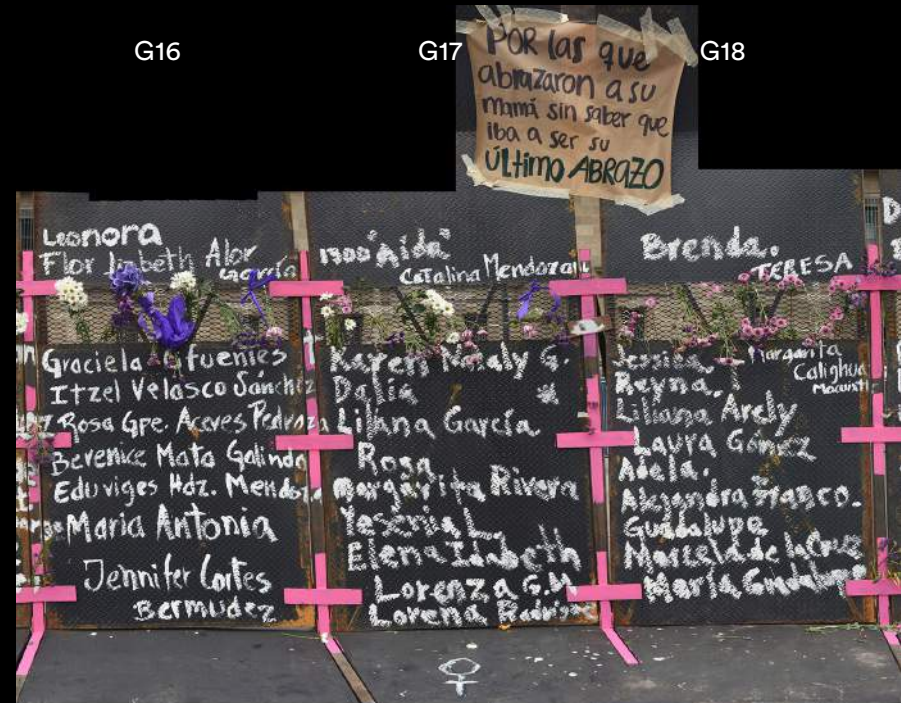 G16
G17
G18
POR las que
abrazaron a su
mamá sin saber que
iba a ser su
ÚLTIMO ABRAZO
Leonora
Flor Lizbeth Alor
García
Graciela Cifuentes
Itzel Velasco Sánchez
Rosa Gpe. Aceves Pedroza
Berenice Mata Galindo
Eduviges Hdz. Mendoza
Maria Antonia
Jennifer Cortes
BERMUDEZ
"Aida"
Catalina Mendoza
Karen Nataly G.
Dalia
Liliana García
Rosa
Margarita Rivera
Yesenia L.
Elena Idabeth
Lorenza G.M
Lorena
Brenda.
TERESA
Jessica
Margarita
Calighua
Reyna.
Liliana Arely
Laura Gómez
Adela.
Alejandra Franco.
Guadalupe
Marcela de la Cruz
María Guadalupe